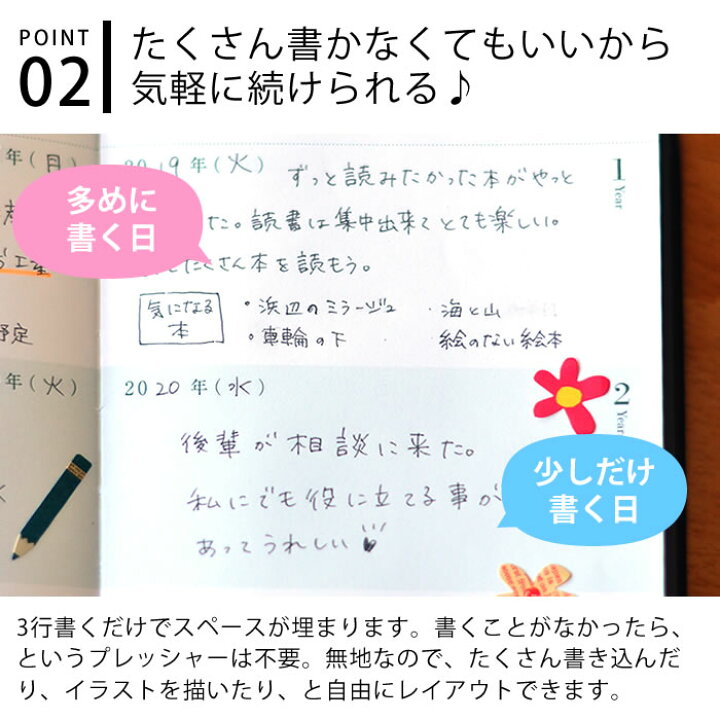 POINT
02
たくさん書かなくてもいいから
気軽に続けられる♪
年(日)
2019年(火) ずっと読みたかった本がやっと
た。読書は集中出来てとても楽しい。
たくさん本を読もう。
1
Year
多めに
書く日
気になる
本
・浜辺のミラージュ
・海と山
・車輪の下
絵のない絵本
予定
年(火)
2020年(水)
2
Year
後輩が相談に来た。
私にでも役に立てる事が
あってうれしい
少しだけ
書く日
3行書くだけでスペースが埋まります。書くことがなかったら、
というプレッシャーは不要。無地なので、たくさん書き込んだ
り、イラストを描いたり、と自由にレイアウトできます。